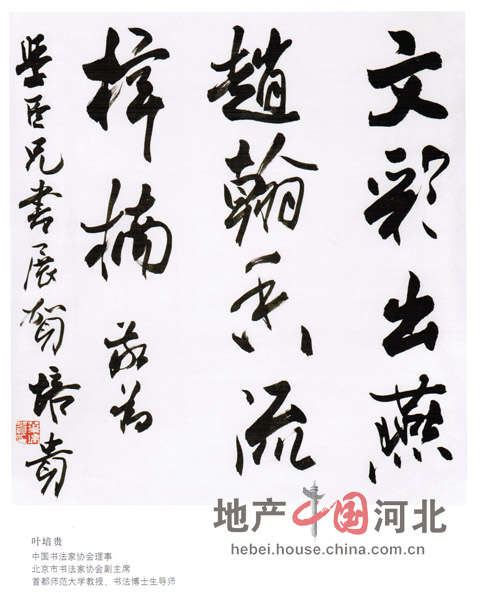 文彩出燕
趙翰香流
梓楠 敬為
臣兄書展賀 培貴
地产中国河北
hebei.house.china.com.cn
叶培贵
中国书法家协会理事
北京市书法家协会副主席
首都师范大学教授、书法博士生导师